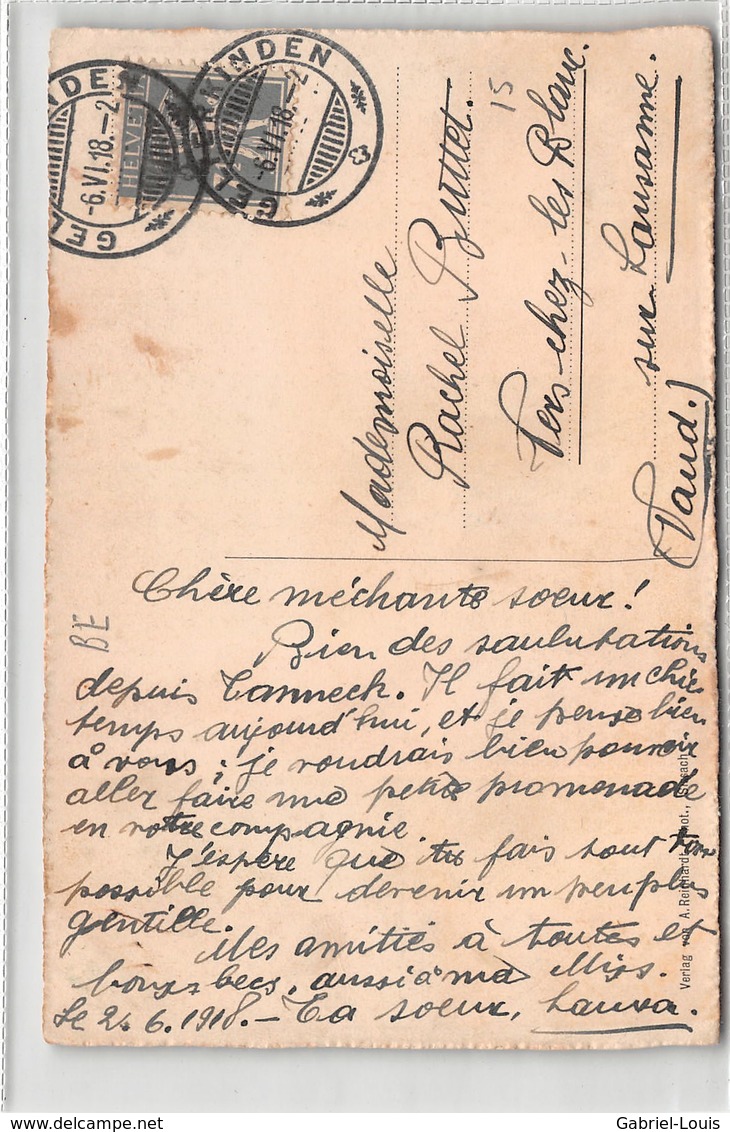 GELTERKINDEN
-6.VI.18.-2
HELVETIA
GELTERKINDEN
-6.VI.18.-2
15
Mademoiselle
Rachel Buttet.
Vers-chez-les Blanc.
sur Lausanne.
(Vaud.)
BE
Chère méchante soeur!
Bien des saulutations
depuis Tanneck. Il fait un chic
temps aujourd'hui, et je pense bien
à vous; je voudrais bien pouvoir
aller faire une petite promenade
en votre compagnie.
J'espère que tu fais tout ton
possible pour devenir un peu plus
gentille.
Mes amitiés à toutes et
bons becs, aussi à ma Miss.
Le 2.6.1918.- Ta soeur, Laura.
Verlag von A. Reinhardt, Phot.,
delcampe.net
Gabriel-Louis